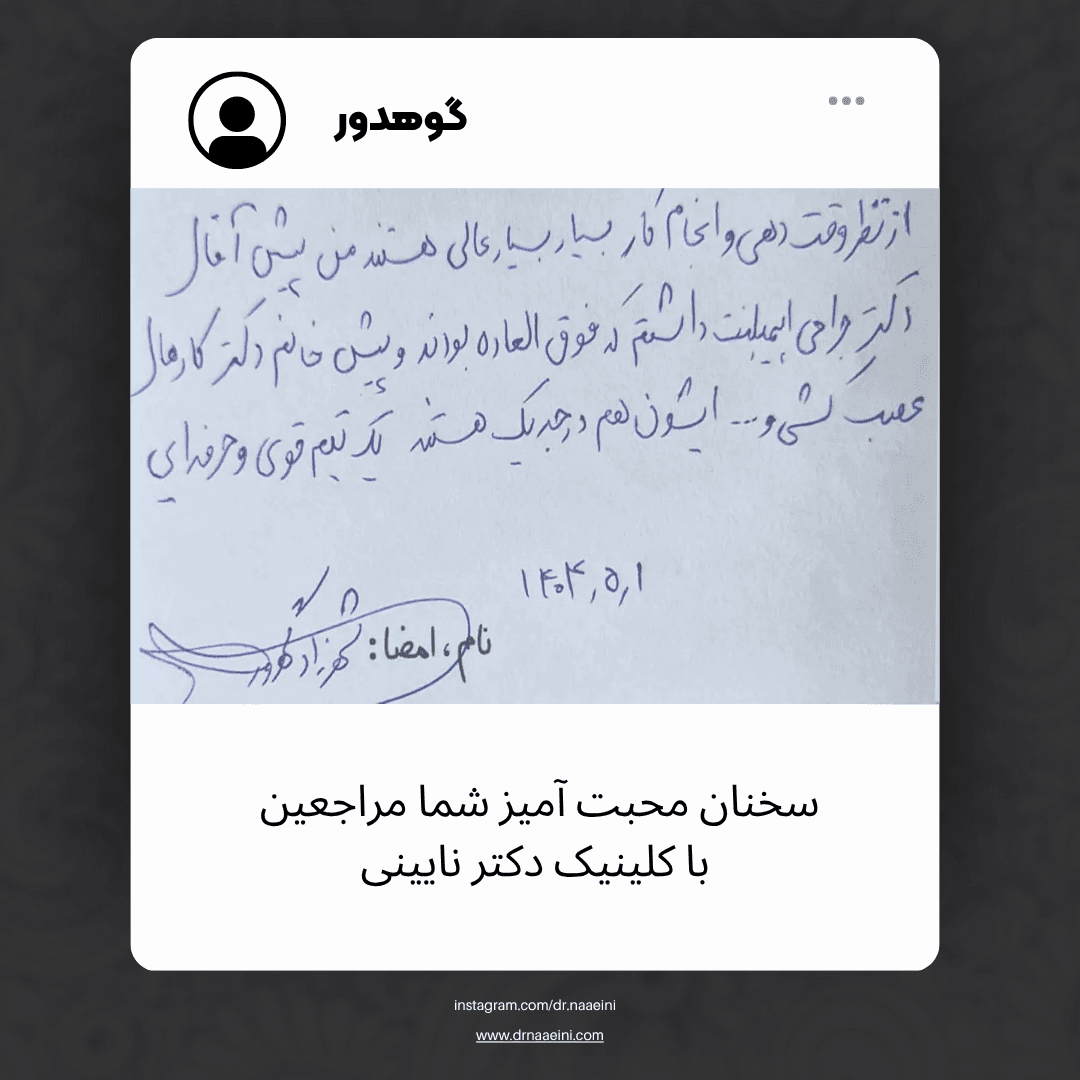 گوهدور
از نظر وقت دهی و انجام کار بسیار بسیار عالی هستند من پیش آقای
دکتر جراحی ایمپلنت داشتم که فوق العاده بودند و پیش خانم دکتر کارهای
عصب کشی و... ایشون هم درجه یک هستند یک تیم قوی و حرفه ای
۱۴۰۴,۵,۱
نام، امضا: شهرزاد
سخنان محبت آمیز شما مراجعین
با کلینیک دکتر نایینی
instagram.com/dr.naaeini
www.drnaaeini.com